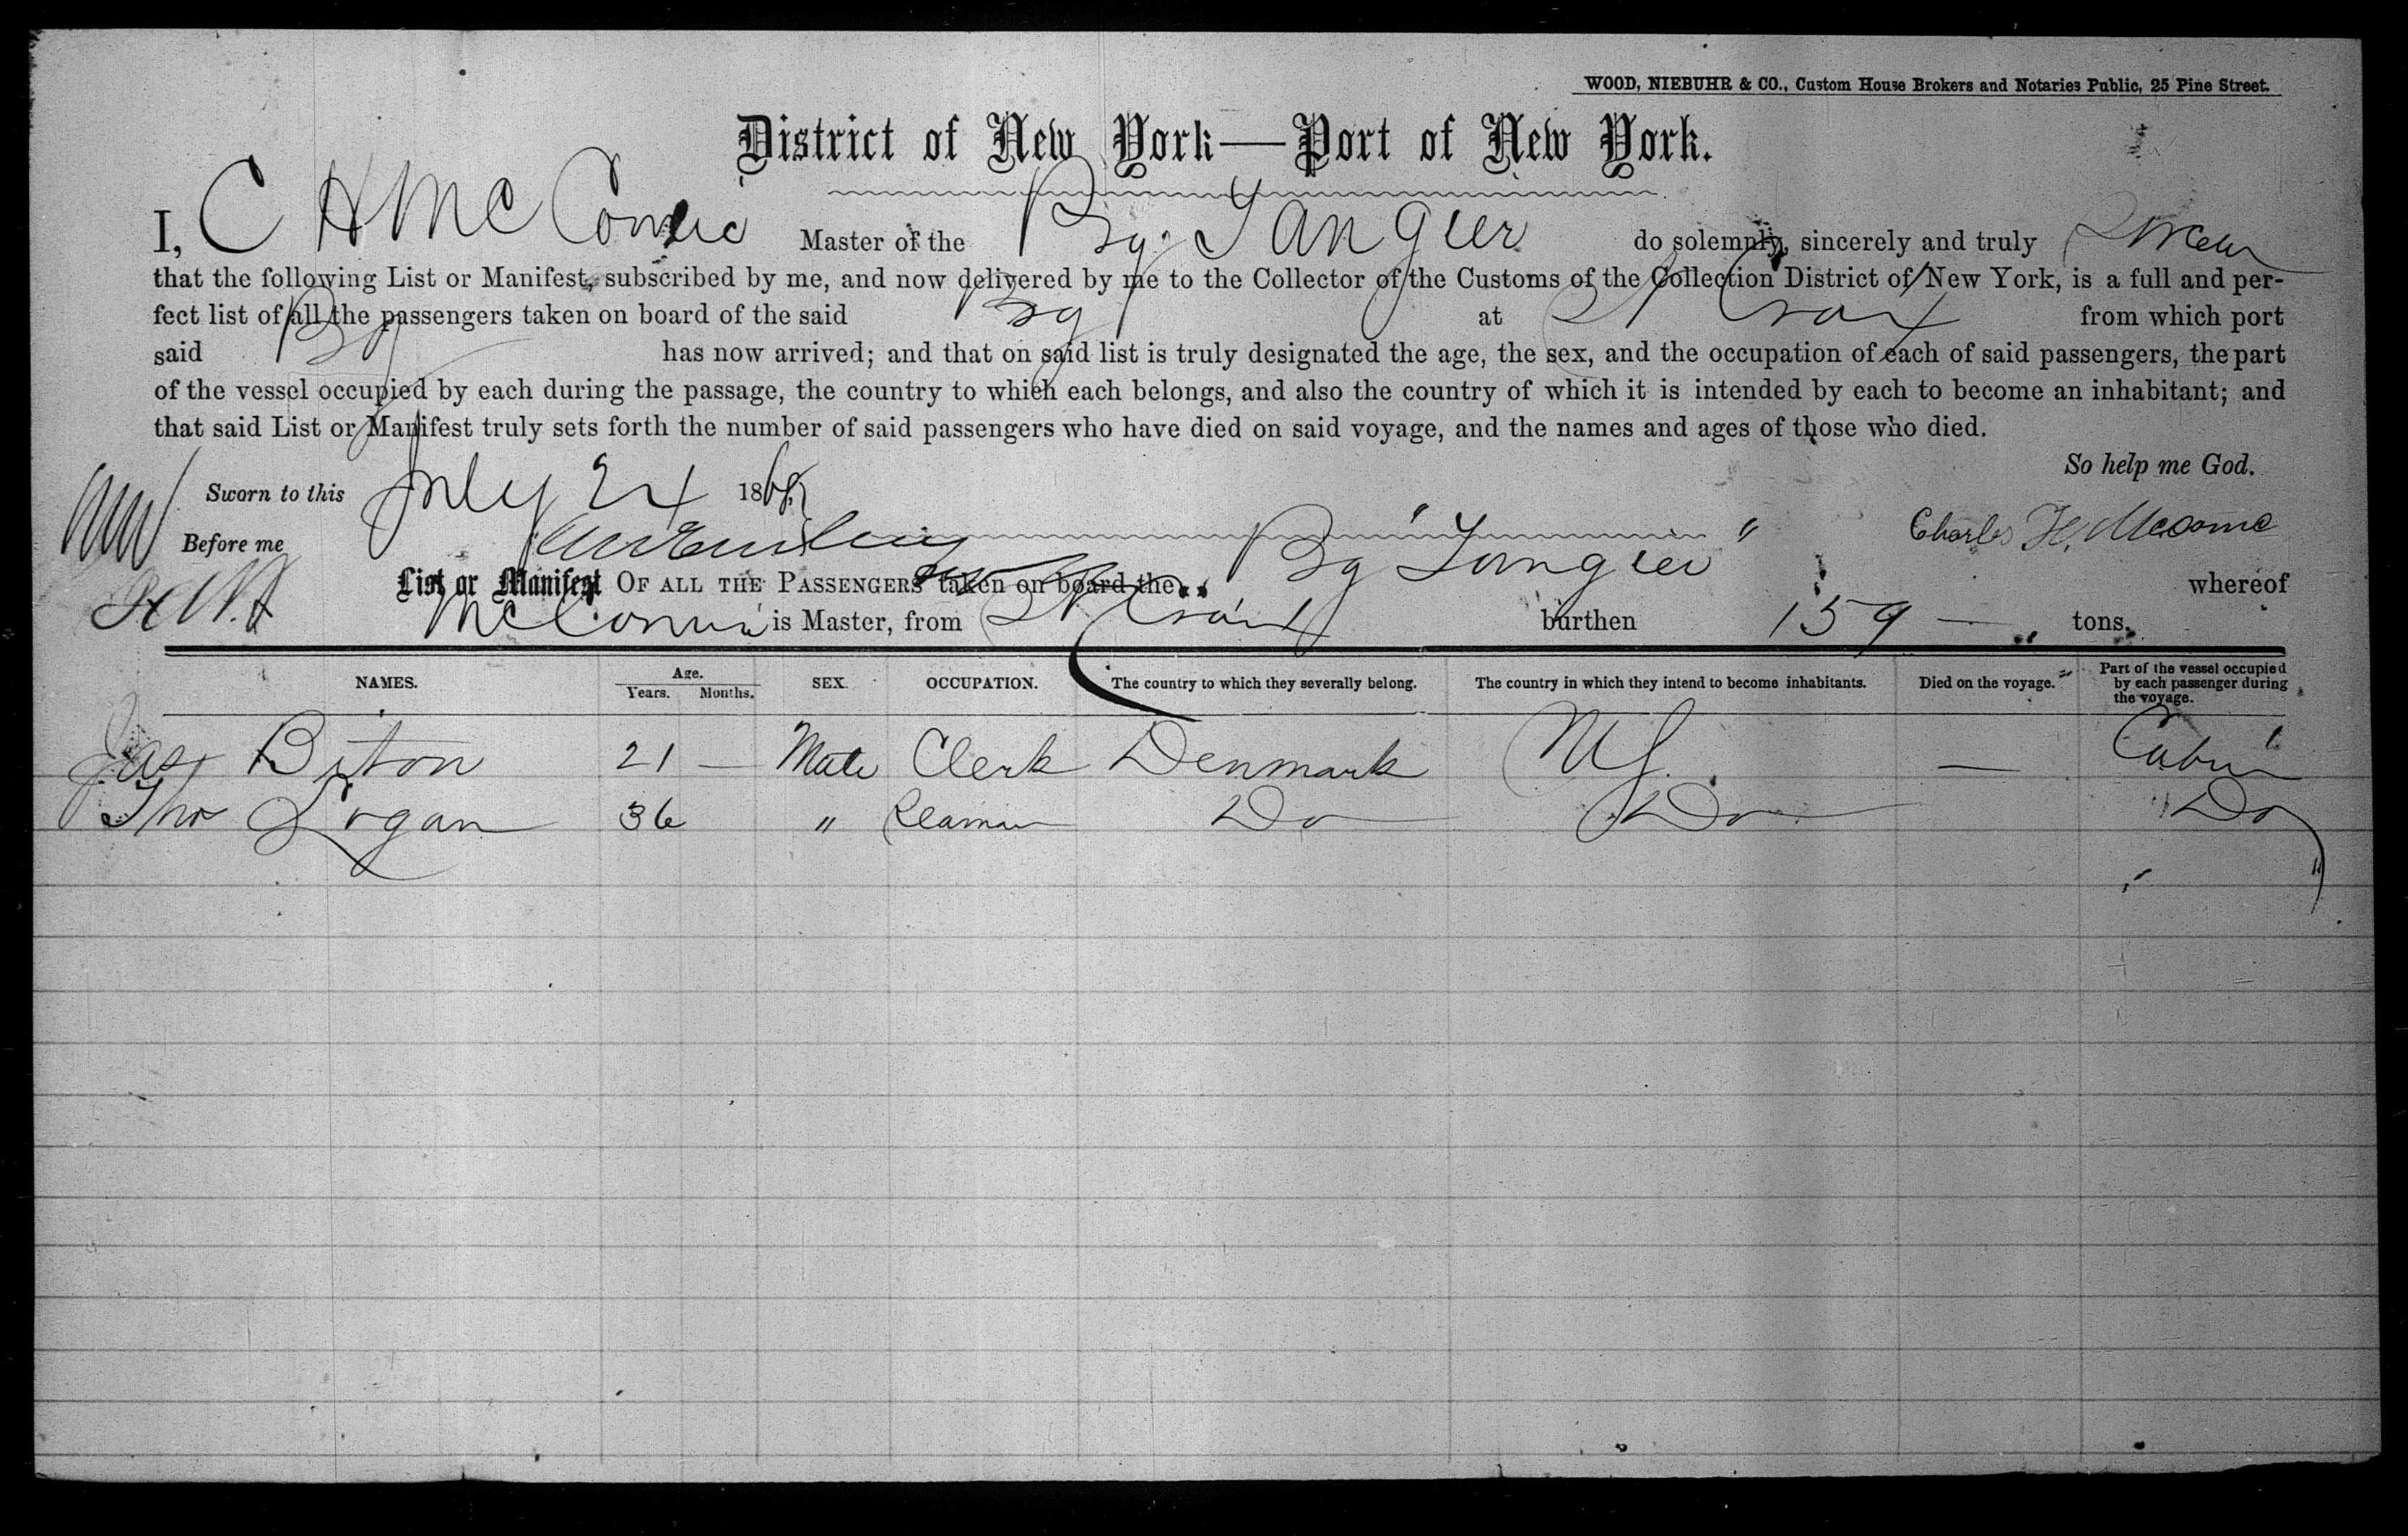 WOOD, NIEBUHR & CO., Custom House Brokers and Notaries Public, 25 Pine Street.
District of New York—Port of New York.
I, C H McComic Master of the Bg. Tangier do solemnly, sincerely and truly swear
that the following List or Manifest, subscribed by me, and now delivered by me to the Collector of the Customs of the Collection District of New York, is a full and per-
fect list of all the passengers taken on board of the said Bg at St Croix from which port
said Bg has now arrived; and that on said list is truly designated the age, the sex, and the occupation of each of said passengers, the part
of the vessel occupied by each during the passage, the country to which each belongs, and also the country of which it is intended by each to become an inhabitant; and
that said List or Manifest truly sets forth the number of said passengers who have died on said voyage, and the names and ages of those who died.
So help me God.
Sworn to this July 24 186
Before me Charles H. Mccomic
List or Manifest OF ALL THE PASSENGERS taken on board the Bg "Tangier" whereof
McComic is Master, from St Croix burthen 159 — tons.
NAMES. Age. Years. Months. SEX. OCCUPATION. The country to which they severally belong. The country in which they intend to become inhabitants. Died on the voyage. Part of the vessel occupied by each passenger during the voyage.
Jas Biton 21 — Male Clerk Denmark US. — Cabin
Thos Logan 36 " Seaman Do Do Do